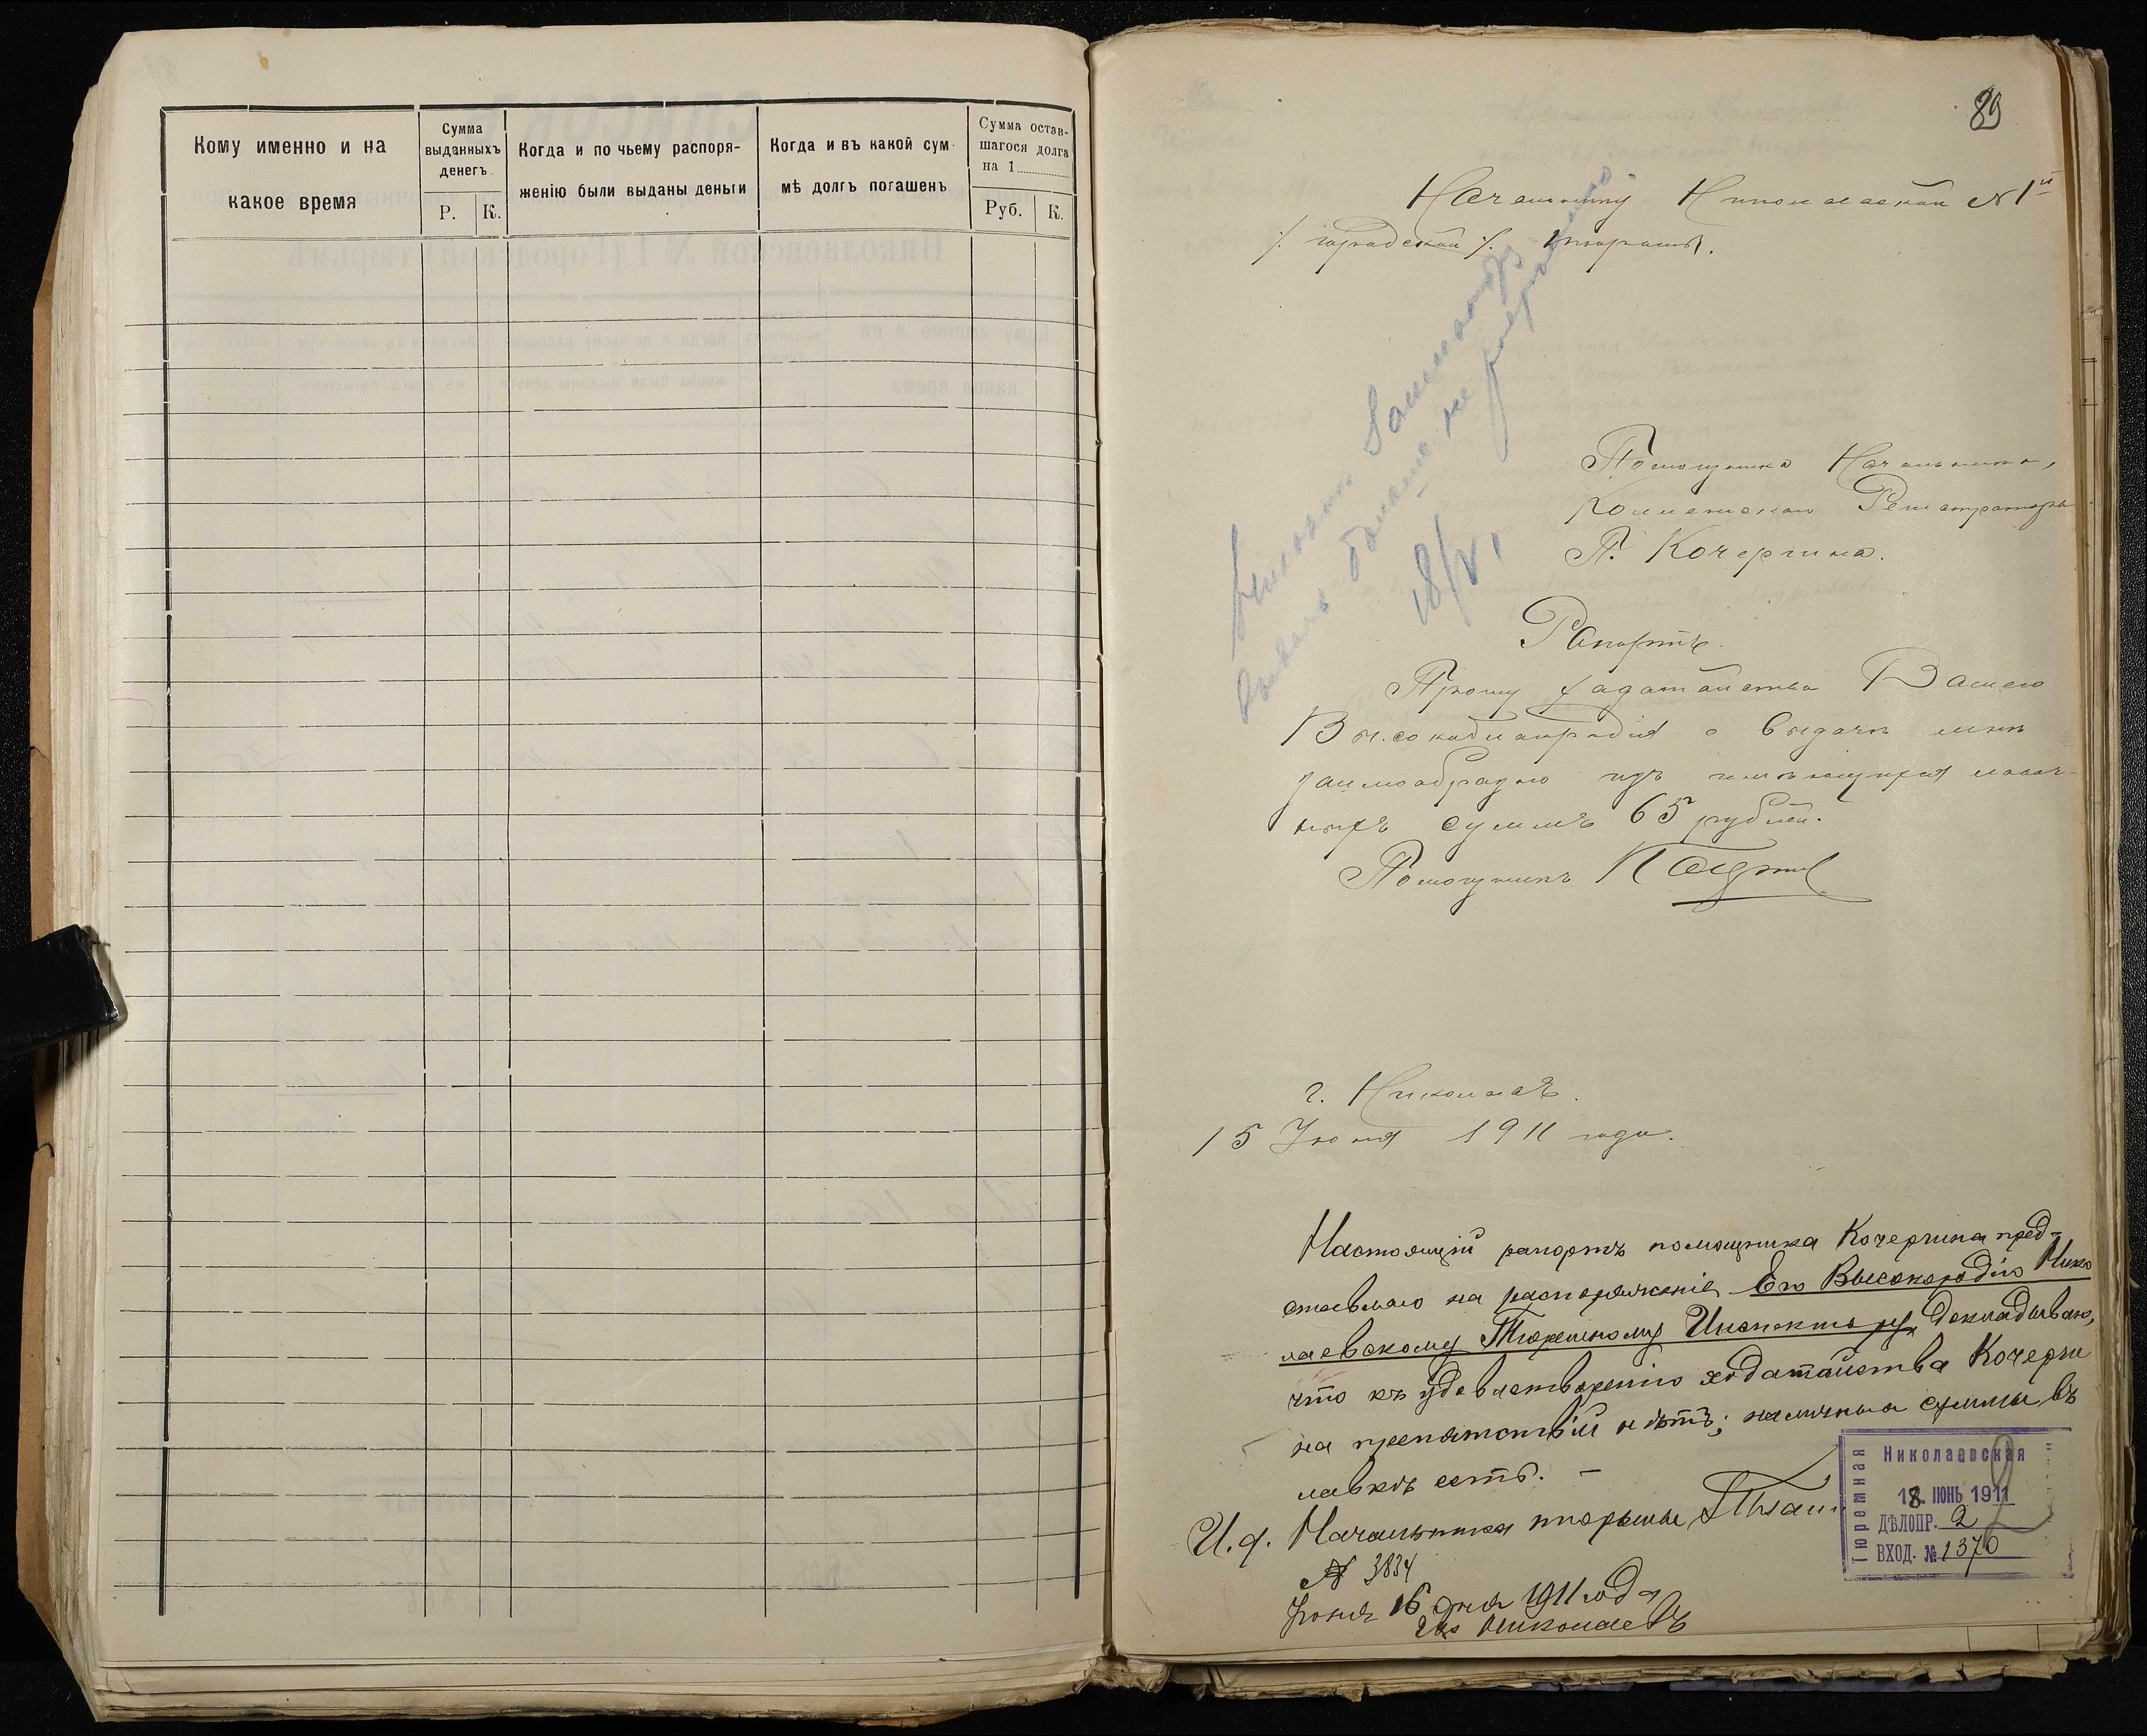 Кому именно и на
какое время
Сумма
выданныхъ
денегъ.
Р. К.
Когда и по чьему распоря-
женію были выданы деньги
Когда и въ какой сум-
мѣ долгъ погашенъ
Сумма остав-
шагося долга
на 1
Руб. К.
89
Начальнику Николаевской №1й
/. городской /. тюрьмы.
больше не
18/VI
Помощника Начальника,
Коллежскаго Регистратора
П. Кочергина.
Рапортъ.
Прошу хадатайства Вашего
Высокоблагородія о выдачи мнѣ
заимообразно изъ имѣющихся лавоч-
ныхъ суммъ 65 рублей.
Помощникъ
г. Николаевъ.
15 Іюня 1911 года.
Настоящій рапортъ помощника Кочергина пред-
ставляю на распоряженіе Его Высокородію Нико
лаевскому Тюремному Инспектору, докладываю,
что къ удовлетворенію ходатайства Кочерги
на препятствій нѣтъ; наличныя суммы въ
лавкѣ есть. –
И. д. Начальника тюрьмы
№ 3834
Іюня 16 дня 1911 года
гор Николаевъ
Николаевская
Тюремная
18. ІЮНЬ 1911
ДѢЛОПР. 2
ВХОД. № 1370